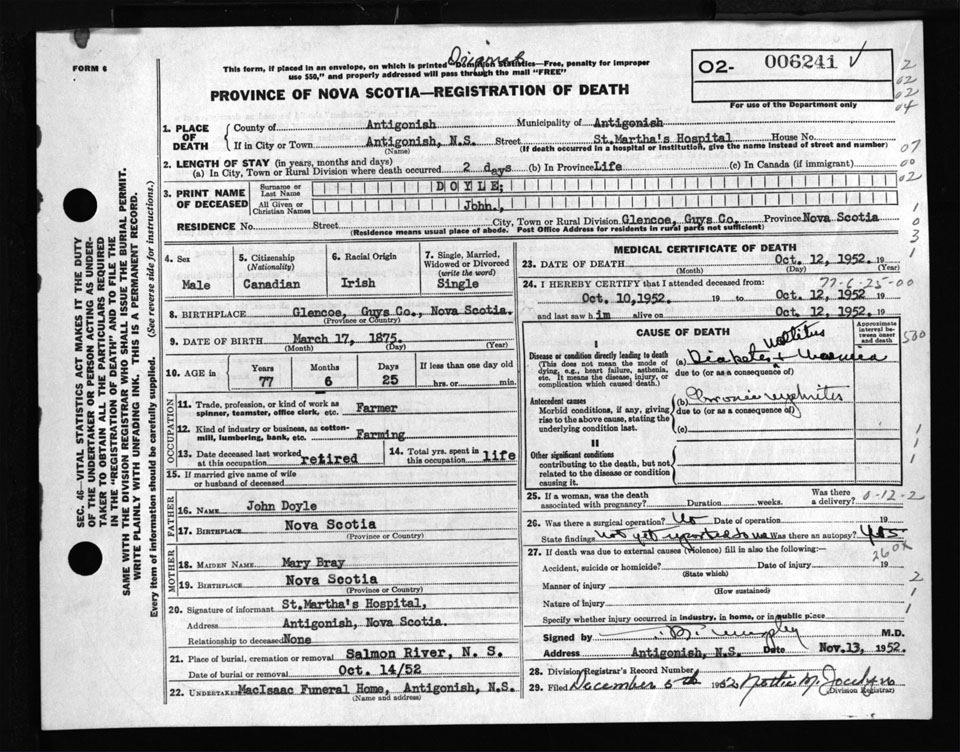 FORM 6
Original
This form, if placed in an envelope, on which is printed "Dominion Statistics—Free, penalty for improper
use $50," and properly addressed will pass through the mail "FREE"
PROVINCE OF NOVA SCOTIA—REGISTRATION OF DEATH
O2- 006241
For use of the Department only
2
02
02
04
07
00
02
1
0
3
1
SEC. 46—VITAL STATISTICS ACT MAKES IT THE DUTY
OF THE UNDERTAKER OR PERSON ACTING AS UNDER-
TAKER TO OBTAIN ALL THE PARTICULARS REQUIRED
IN THE "REGISTRATION OF DEATH" AND TO FILE THE
SAME WITH THE DIVISION REGISTRAR WHO SHALL ISSUE THE BURIAL PERMIT.
WRITE PLAINLY WITH UNFADING INK. THIS IS A PERMANENT RECORD.
Every item of information should be carefully supplied. (See reverse side for instructions.)
1. PLACE OF DEATH
County of Antigonish Municipality of Antigonish
If in City or Town Antigonish, N.S. Street St.Martha's Hospital House No.
(Name) (If death occurred in a hospital or institution, give the name instead of street and number)
2. LENGTH OF STAY (in years, months and days)
(a) In City, Town or Rural Division where death occurred 2 days (b) In Province Life (c) In Canada (if immigrant)
3. PRINT NAME OF DECEASED
Surname or Last Name DOYLE;
All Given or Christian Names John.,
RESIDENCE No. Street City, Town or Rural Division Glencoe, Guys Co. Province Nova Scotia
(Residence means usual place of abode. Post Office Address for residents in rural parts not sufficient)
4. Sex
Male
5. Citizenship
(Nationality)
Canadian
6. Racial Origin
Irish
7. Single, Married,
Widowed or Divorced
(write the word)
Single
8. BIRTHPLACE Glencoe, Guys Co., Nova Scotia.
(Province or Country)
9. DATE OF BIRTH March 17, 1875.
(Month) (Day) (Year)
10. AGE in
Years 77
Months 6
Days 25
If less than one day old
hrs. or min.
OCCUPATION
11. Trade, profession, or kind of work as
spinner, teamster, office clerk, etc. Farmer
12. Kind of industry or business, as cotton-
mill, lumbering, bank, etc. Farming
13. Date deceased last worked
at this occupation retired
14. Total yrs. spent in
this occupation life
15. If married give name of wife
or husband of deceased
FATHER
16. NAME John Doyle
17. BIRTHPLACE Nova Scotia
(Province or Country)
MOTHER
18. MAIDEN NAME Mary Bray
19. BIRTHPLACE Nova Scotia
(Province or Country)
20. Signature of informant St.Martha's Hospital,
Address Antigonish, Nova Scotia.
Relationship to deceased None
21. Place of burial, cremation or removal Salmon River, N. S.
Date of burial or removal Oct. 14/52
22. UNDERTAKER MacIsaac Funeral Home, Antigonish, N.S.
(Name and address)
MEDICAL CERTIFICATE OF DEATH
23. DATE OF DEATH Oct. 12, 1952.
(Month) (Day) (Year)
77-6-25-00
24. I HEREBY CERTIFY that I attended deceased from:
Oct. 10,1952. 19 to Oct. 12, 1952 19
and last saw him alive on Oct. 12, 1952 19
CAUSE OF DEATH
Approximate interval between onset and death
530
I
Disease or condition directly leading to death
(This does not mean the mode of
dying, e.g., heart failure, asthenia,
etc. It means the disease, injury, or
complication which caused death.)
(a) Diabetes mellitus
due to (or as a consequence of)
Antecedent causes
Morbid conditions, if any, giving
rise to the above cause, stating the
underlying condition last.
(b) Chronic nephritis
due to (or as a consequence of)
(c)
II
Other significant conditions
contributing to the death, but not
related to the disease or condition
causing it.
1
1
1
25. If a woman, was the death
associated with pregnancy? Duration weeks. Was there a delivery? 0-12-2
26. Was there a surgical operation? No Date of operation 19
State findings not yet reported to me Was there an autopsy? Yes
27. If death was due to external causes (Violence) fill in also the following:— 260X
Accident, suicide or homicide? Date of injury 19
(State which)
Manner of injury
(How sustained)
Nature of injury
Specify whether injury occurred in industry, in home, or in public place
2
1
1
Signed by M.D.
Address Antigonish, N.S. Date Nov.13, 1952.
28. Division Registrar's Record Number
29. Filed December 5th 1952
(Division Registrar)